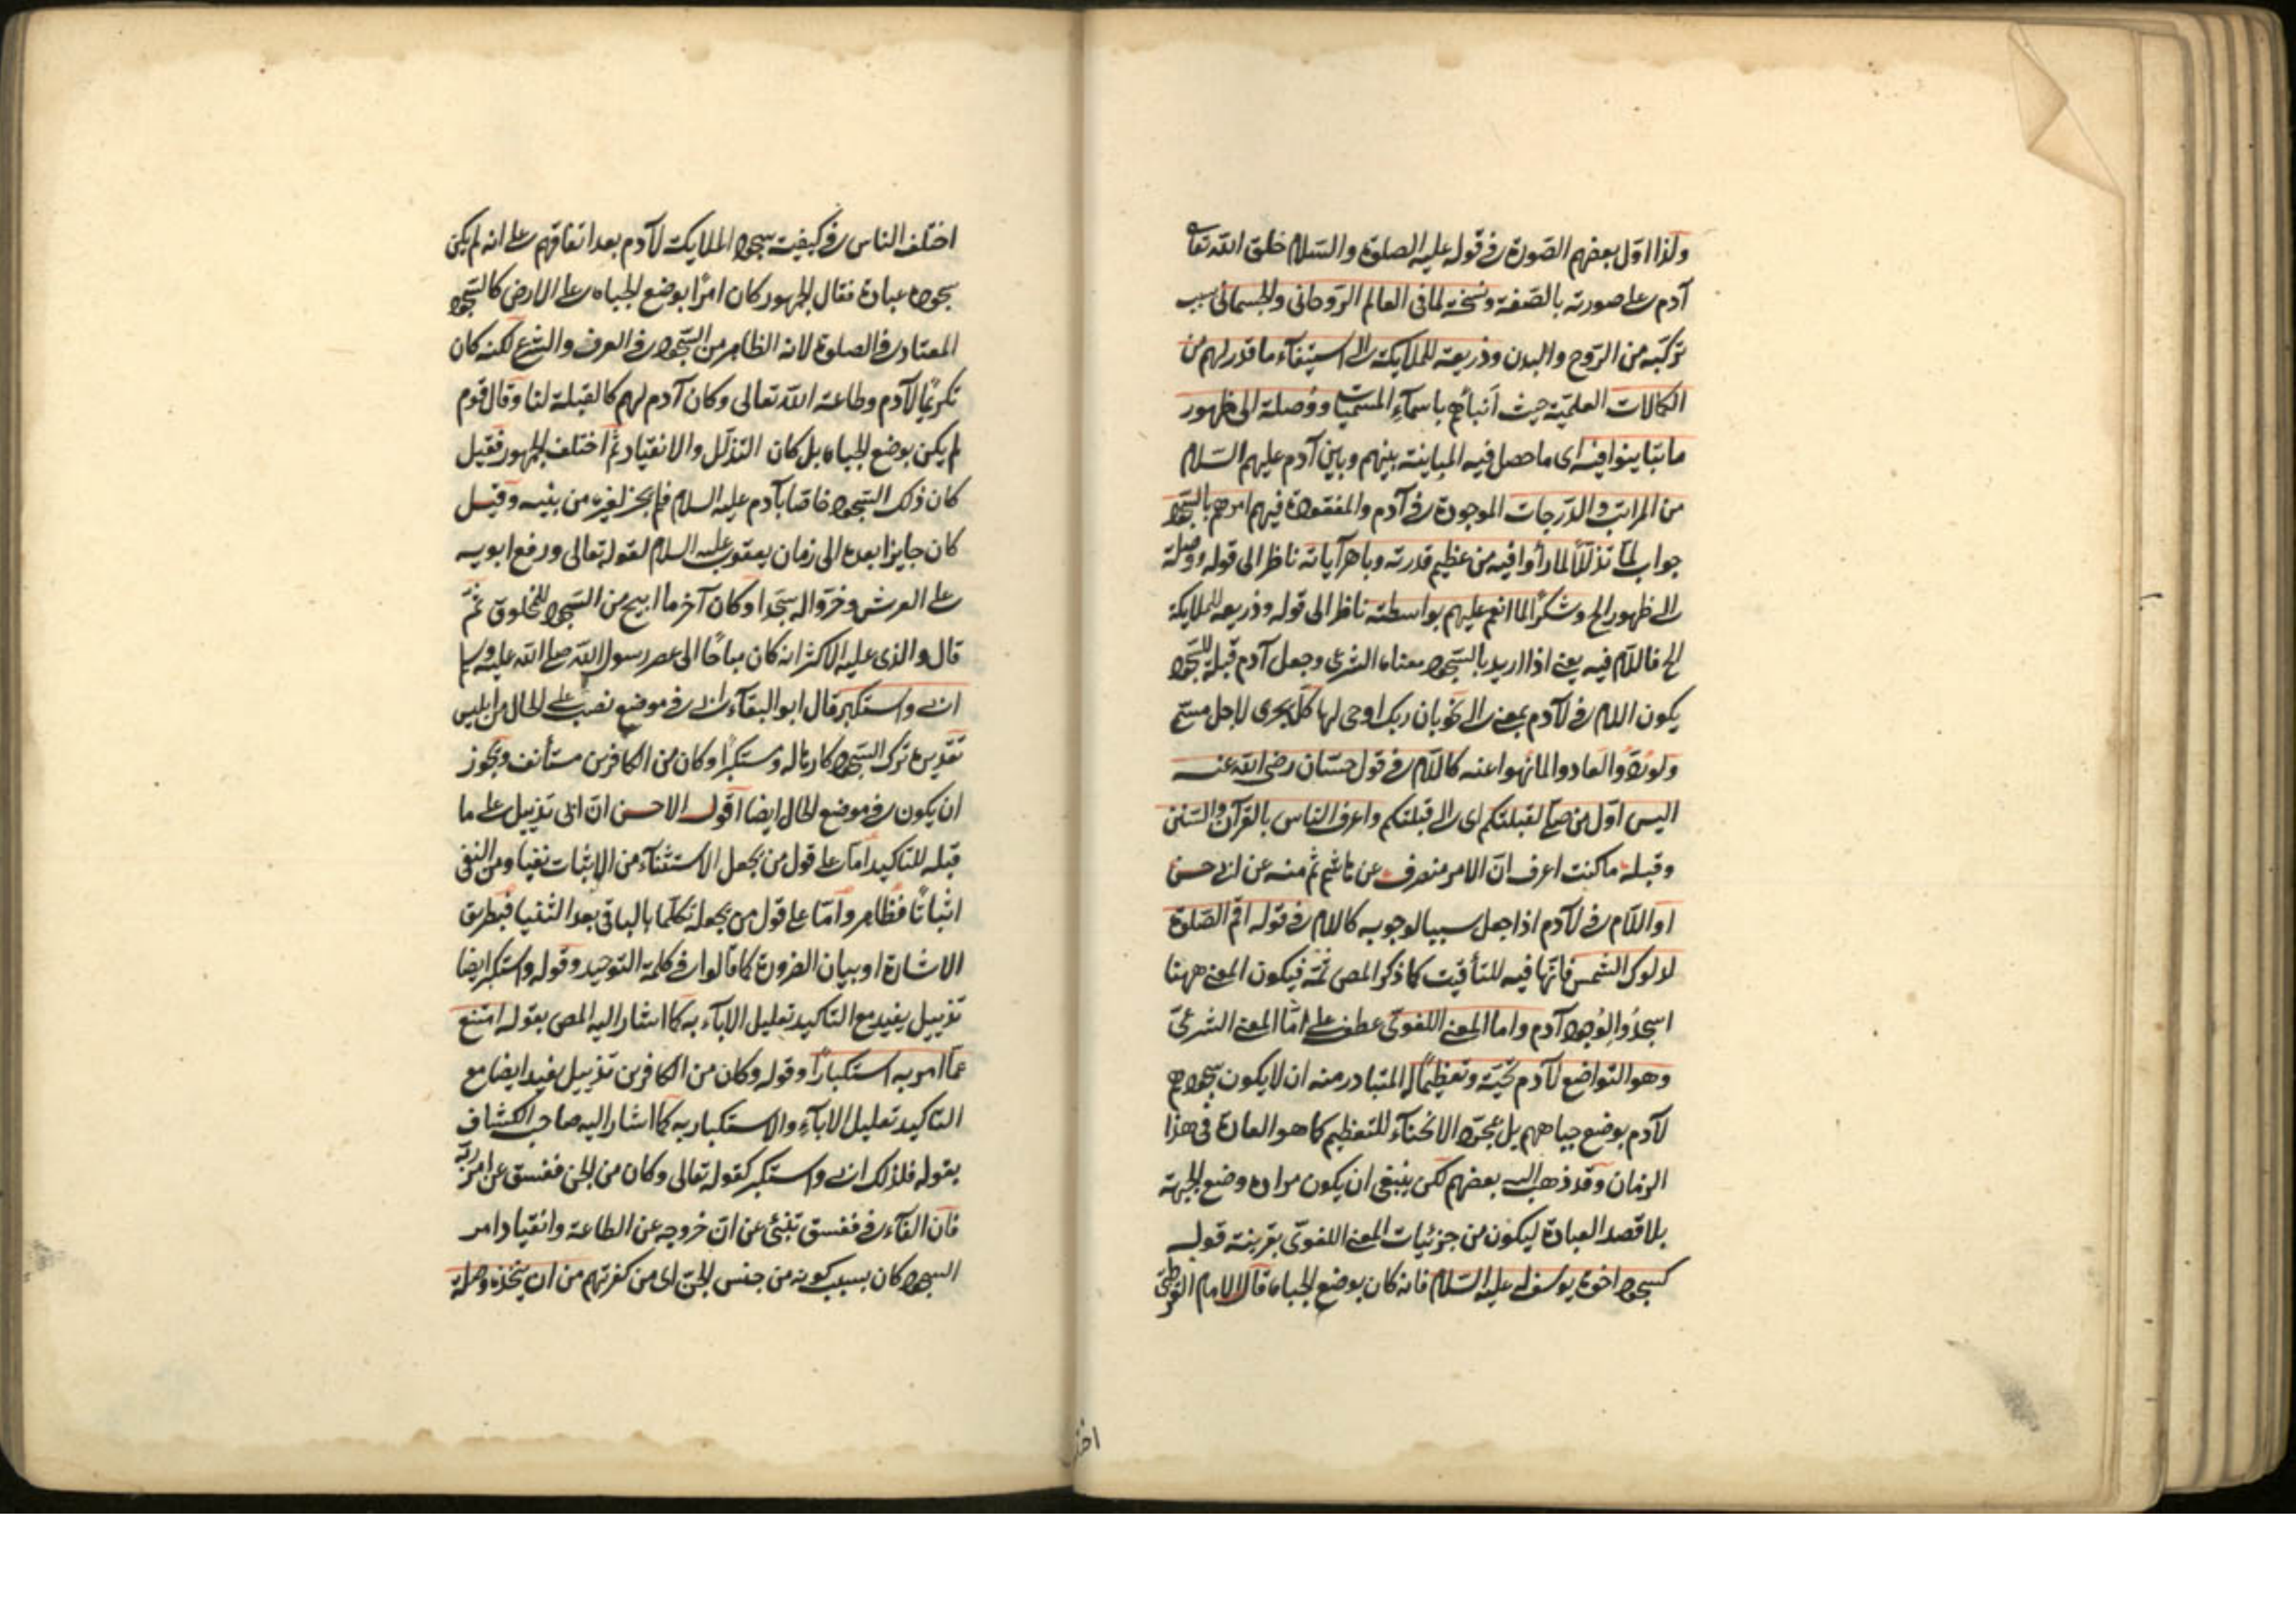 ولذا اوّل بعضهم الصّورة فى قوله عليه الصلوة والسّلام خلق الله تعا
آدم على صورته بالصّفة ونسخة لما فى العالم الرّوحانى والجسمانى بسبب
تركّبه من الرّوح والبدن وذريعة للملايكة الى استيفآء ما قدر لهم من
الكمالات العلميّة حيث أنبأهم باسمآء المسمّيات ووُصلة الى ظهور
ما تباينوا فيه اى ما حصل فيه المباينة بينهم وباين آدم عليهم السّلام
من المراتب والدّرجات الموجودة فى آدم والمفقودة فيهم امرهم بالسّجود
جواب لمّا تذلّلاً لما رأوا فيه من عظيم قدرته وباهر آياته ناظر الى قوله ووصلة
الى ظهور الخ وشكرًا لما انعم عليهم بواسطته ناظر الى قوله وذريعة للملايكة
الخ فاللاّم فيه يعنى اذا اريد بالسّجود معناه الشرعى وجعل آدم قبلة للسّجود
يكون اللام فى لآدم بمعنى الى نحو بان ربك اوحى لها كلّ يجرى لاجل مسمّى
ولو رُدُّوا لعادوا لما نُهوا عنه كاللاّم فى قول حسّان رضى الله عنه
اليس اوّل من صلّى لقبلتكم اى الى قبلتكم واعرف الناس بالقرآن والسّنن
وقبله ما كنت اعرف انّ الامر منصرف عن هاشم ثم منه عن ابى حسن
او اللاّم فى لآدم اذا جعل سببا لوجوبه كالام فى قوله اقم الصّلوة
لدلوك الشمس فانّها فيه للتأقيت كما ذكر المص ثمّه فيكون المعنى ههنا
اسجُدُوا لوُجود آدم واما المعنى اللغوىّ عطف على امّا المعنى الشرعىّ
وهو التواضع لآدم تحيّة وتعظيمًا له المتبادر منه ان لا يكون سجودهم
لآدم بوضع جباههم بل بمجرّد الانحنآء للتعظيم كما هو العادة فى هذا
الزمان وقد ذهب اليه بعضهم لكن ينبغى ان يكون مراده وضع الجبهة
بلا قصد العبادة ليكون من جزئيات المعنى اللغوىّ بقرينة قوله
كسجود اخوة يوسف له عليه السّلام فانه كان بوضع الجباه قال الامام القرطبىّ
اختلف
اختلف الناس فى كيفية سجود الملايكة لآدم بعد اتفاقهم على انه لم يكن
سجوده عبادة فقال الجمهور كان امرًا بوضع الجباه على الارض كالسّجود
المعتاد فى الصلوة لانه الظاهر من السّجود فى العرف والشّرع لكنه كان
تكريمًا لآدم وطاعة الله تعالى وكان آدم لهم كالقبلة لنا وقال قوم
لم يكن بوضع الجباه بل كان التذلّل والانقياد ثمّ اختلف الجمهور فقيل
كان ذلك السّجود خاصّا بآدم عليه السلام فلم يجز لغيره من بنيه وقيل
كان جايزا بعده الى زمان يعقوب عليه السلام لقوله تعالى ورفع ابويه
على العرش وخرّوا له سجّدا وكان آخر ما ابيح من السّجود للمخلوق ثمّ
قال والذى عليه الاكثر انه كان مباحًا الى عصر رسول الله صلى الله عليه وسلم
ابى واستكبر قال ابو البقآء ابى فى موضع نصب على الحال من ابليس
تقديره ترك السّجود كارها له ومستكبرًا وكان من الكافرين مستأنف ويجوز
ان يكون فى موضع الحال ايضا اقول الاحسن انّ ابى تذييل على ما
قبله للتاكيد امّا على قول من يجعل الاستثنآء من الاثبات نفيا ومن النفى
اثباتًا فظاهر وامّا على قول من يجعله تكلّما بالباقى بعد الثنيا فبطريق
الاشارة او بيان الضرورة كما قالوا فى كلمة التوحيد وقوله واستكبر ايضا
تذييل يفيد مع التاكيد تعليل الابآء به كما اشار اليه المص بقوله امتنع
عمّا امر به استكبارًا وقوله وكان من الكافرين تذييل يفيد ايضا مع
التاكيد تعليل الابآء والاستكبار به كما اشار اليه صاحب الكشاف
بقوله فلذلك ابى واستكبر كقوله تعالى وكان من الجن ففسق عن امر ربّه
فان الفآء فى ففسق تنبئ عن انّ خروجه عن الطاعة وانقياد امر
السجود كان بسبب كونه من جنس الجن اى من كفرتهم من ان يتخذه وصلة